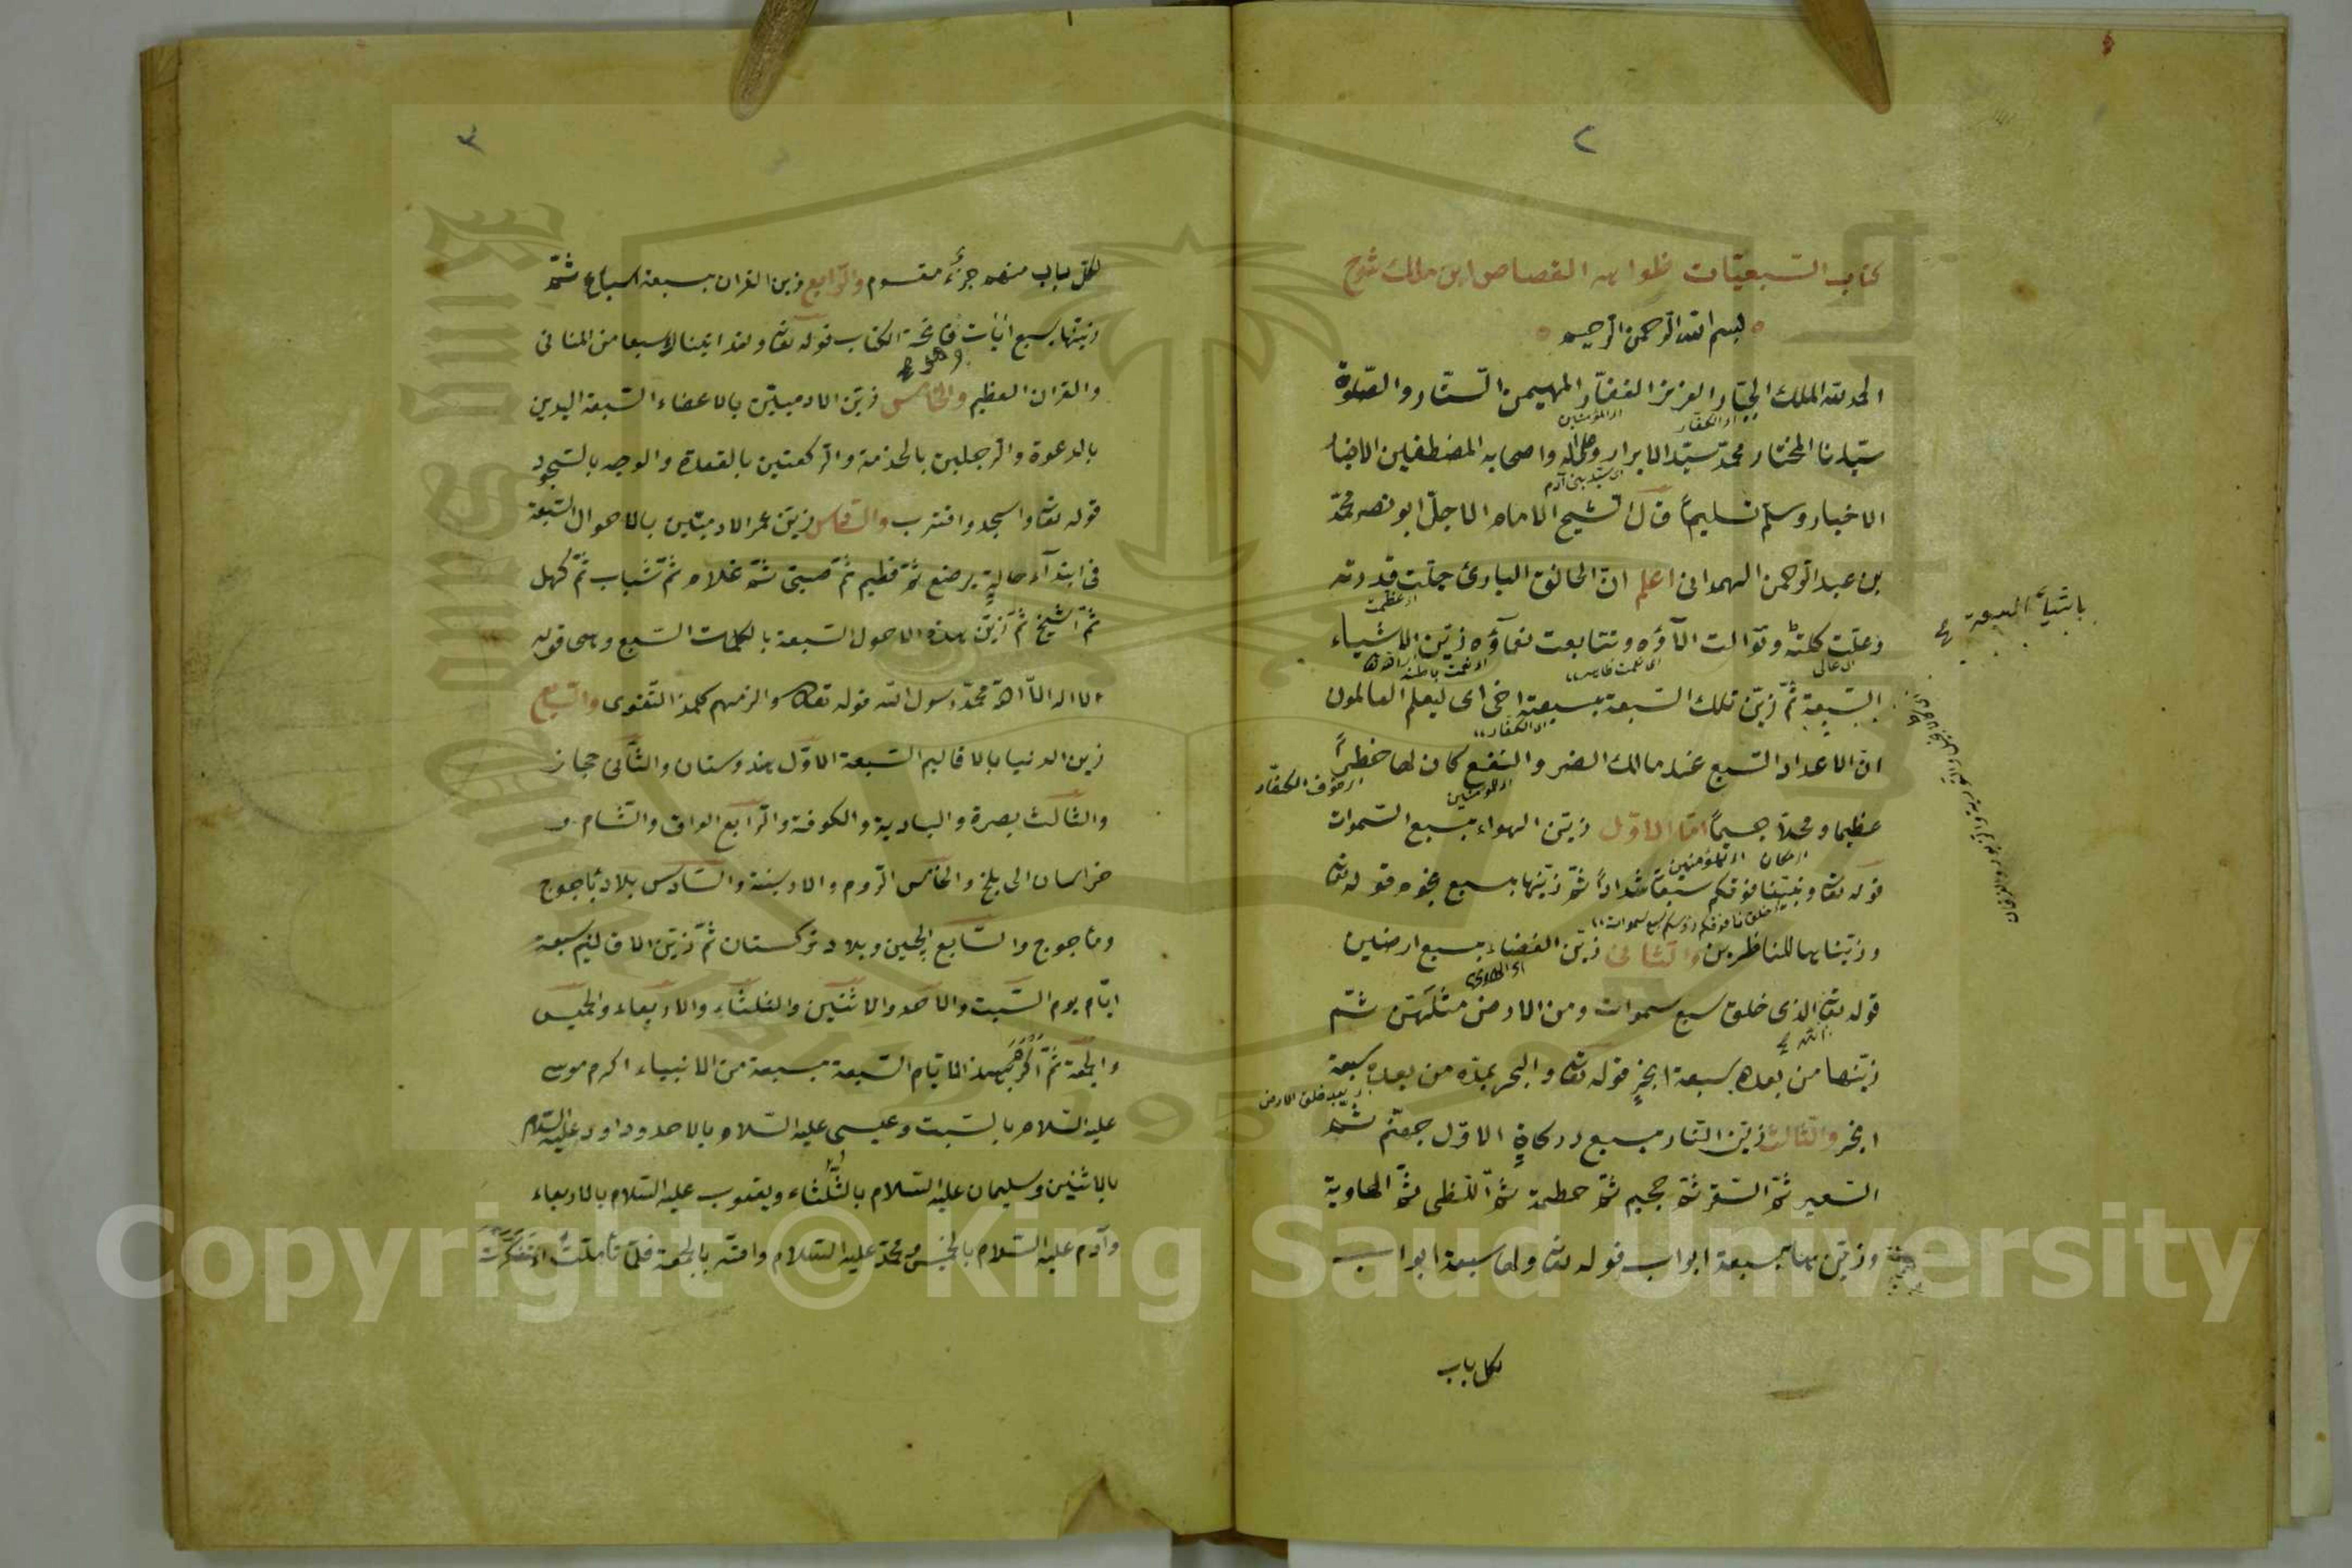 ٢
كتاب السبعيات
بسم الله الرحمن الرحيم
الحمد لله الملك الجبار العزيز الغفار المهيمن الستار والصلوة
اى الكفار
اى المؤمنين
سيدنا المختار محمد سيد الابرار وعلى اله واصحابه المصطفين
اى سيد بنى آدم
الاخيار وسلم تسليماً قال الشيخ الامام الاجل ابو نصر محمد
بن عبد الرحمن الهمدانى اعلم ان الخالق البارئ جلت قدرته
اى عظمت
وعلت كلمته وتوالت الآؤه وتتابعت نعمآؤه زين الاشياء
باشياء السبعة
السبعة ثم زين تلك السبعة بسبعة اخرى ليعلم العالمون
اى الكفار
ان الاعداد السبع عند مالك الضر والنفع كان لها خطراً
اى المؤمنين
عظيما ومحلا جسيماً اما الاول زين الهواء بسبع السموات
اى مكان
قوله تعا وبنينا فوقكم سبعا شداداً ثم زينها بسبع نجوم قوله تعا
وزيناها للناظرين والثانى زين الفضاء بسبع ارضين
قوله تعا الذى خلق سبع سموات ومن الارض مثلهن ثم
زينها من بعده بسبعة ابحرٍ قوله تعا والبحر يمده من بعده سبعة
اى بعد خلق الارض
ابحر والثالث زين النار بسبع دركاةٍ الاول جهنم ثم
السعير ثم السقر ثم جحيم ثم حطمة ثم اللظى ثم الهاوية
وزين بسبعة ابواب قوله تعا ولها سبعة ابواب
لكل باب
٣
لكل باب منهم جزءٌ مقسوم والرابع زين القران بسبعة اسباع ثم
زينها بسبع ايات فاتحة الكتاب قوله تعا ولقد اتيناك سبعا من المثانى
والقران العظيم والخامس زين الادميين بالاعضاء السبعة اليدين
بالدعوة والرجلين بالخدمة والركعتين بالقعدة والوجه بالسجود
قوله تعا واسجد واقترب والسادس زين عمر الادميين بالاحوال السبعة
فى ابتدآء حاليةٍ يرضع ثم فطيم ثم صبىّ ثم غلام ثم شباب ثم كهل
ثم الشيخ ثم زين بهذه الاحول السبعة بالكلمات السبع وهى قوله
لا اله الا الله محمد رسول الله قوله تعا والزمهم كلمة التقوى والسابع
زين الدنيا بالاقاليم السبعة الاول هندوستان والثانى حجاز
والثالث بصرة والبادية والكوفة والرابع العراق والشام و
خراسان الى بلخ والخامس الروم والارمنية والسادس بلاد ياجوج
وماجوج والسابع الچين وبلاد تركستان ثم زين الاقاليم سبعة
ايام يوم السبت والاحد والاثنين والثلثاء والاربعاء والخميس
والجمعة ثم اكرم بهذ الايام السبعة بسبعة من الانبياء اكرم موسى
عليه السلام بالسبت وعيسى عليه السلام بالاحد وداود عليه السلام
بالاثنين وسليمان عليه السلام بالثلثاء ويعقوب عليه السلام بالاربعاء
وآدم عليه السلام بالخميس ومحمد عليه السلام وامته بالجمعة فلما تاملت اى تفكرت
Copyright © King Saud University
1957